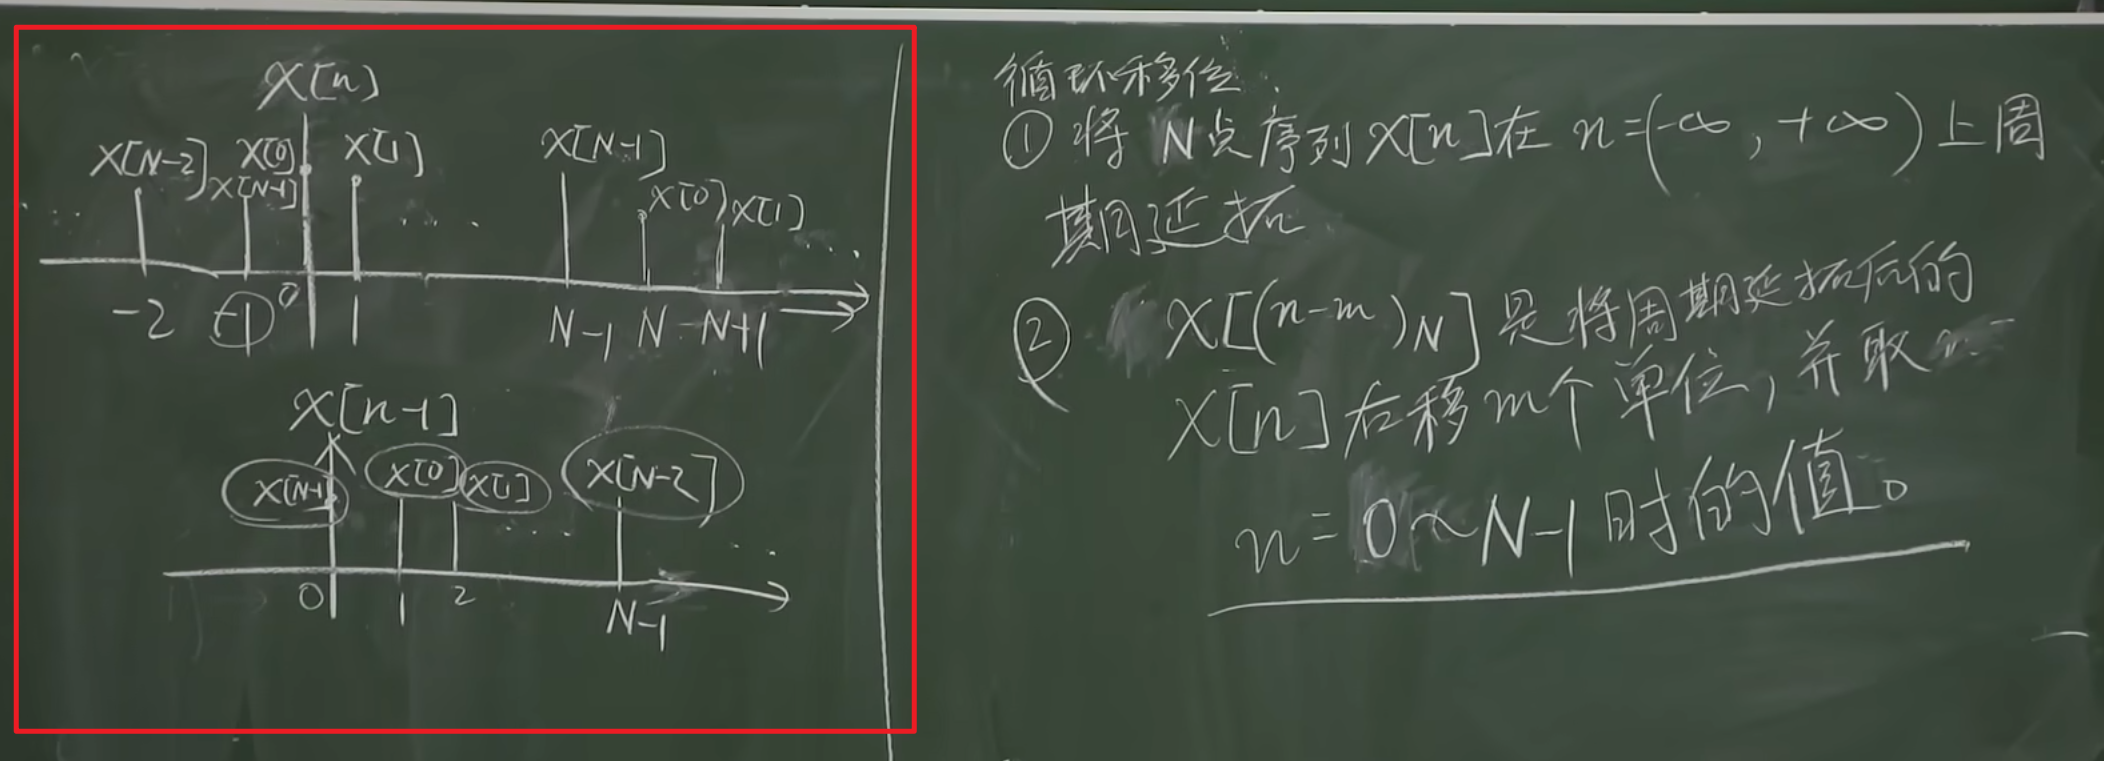 X[n]
X[N-2] X[0] X[1] X[N-1]
X[N-1] X[0] X[1]
-2 -1 0 1 N-1 N N+1
X[n-1]
X[N-1] X[0] X[1] X[N-2]
0 1 2 N-1
循环移位.
① 将 N点序列 X[n]在 n=(-∞, +∞)上周
期延拓
② X[(n-m)N] 是将周期延拓后的
X[n] 右移m个单位, 并取
n=0~N-1时的值。